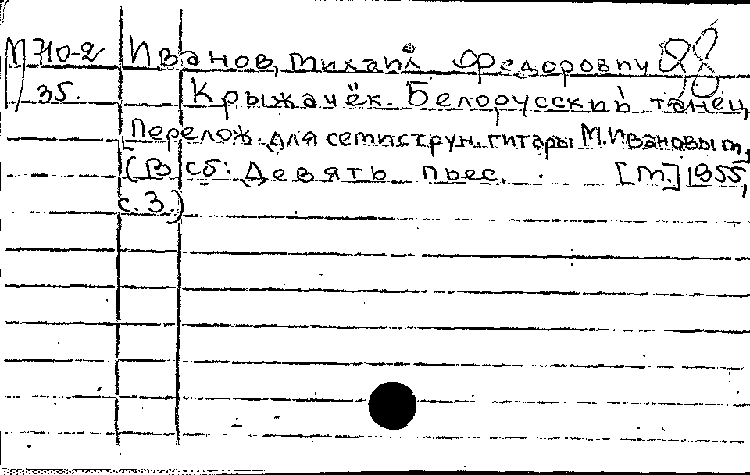 М 710-2 Иванов, Михаил Федорович 28
35. Крыжачёк. Белорусский танец,
Перелож. для семиструн. гитары М. Ивановым,
(В сб: Девять пьес. [М.] 1955,
с. 3.)